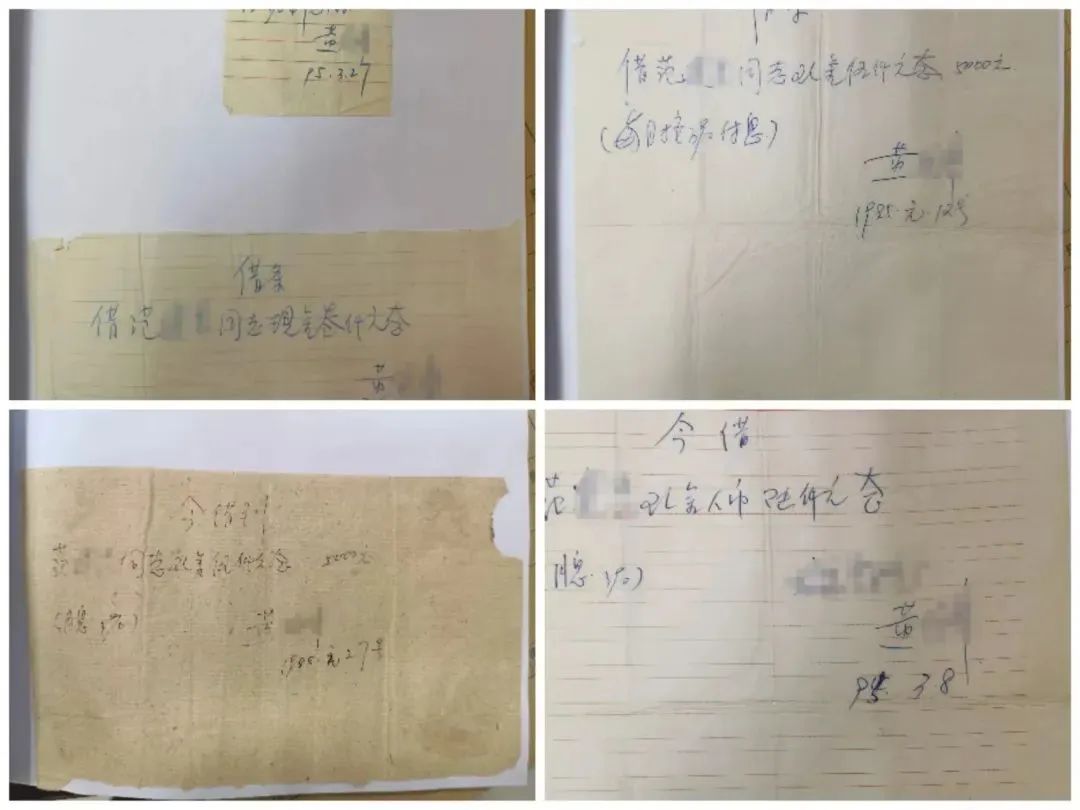 黄
95.3.27
借条
借范 同志现金叁仟元整
黄
借条
借范 同志现金伍仟元整 5000元
(每月按3%付息)
黄
1995.元.12号
今借到
范 同志现金伍仟元整 5000元
(月息3%)
黄
1995.元.27号
今借
范 现金人币陆仟元整
月息.3%)
黄
95.3.8